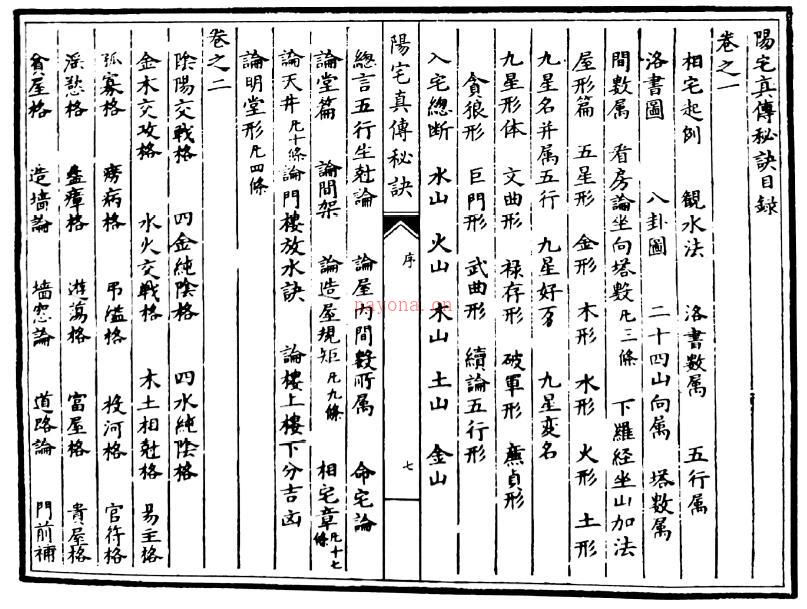 陽宅真傳秘訣目録
卷之一
相宅起例 觀水法 洛書數属 五行属
洛書圖 八卦圖 二十四山向属 塔數属
間數属 看房論坐向塔數凡三條 下羅经坐山加法
屋形篇 五星形 金形 木形 水形 火形 土形
九星名并属五行 九星好歹 九星変名
九星形体 文曲形 禄存形 破軍形 廉貞形
貪狼形 巨門形 武曲形 續論五行形
入宅緫断 水山 火山 木山 土山 金山
陽宅真傳秘訣
序
七
總言五行生尅論 論屋内間數所属 命宅論
論堂篇 論間架 論造屋規矩凡九條 相宅章凡十七條
論天井凡十條 論門樓放水訣 論樓上樓下分吉凶
論明堂形凡四條
卷之二
陰陽交戰格 四金純陰格 四水純陰格
金木交攻格 水火交戰格 木土相尅格 易主格
孤寡格 癆病格 弔溢格 投河格 官符格
淫慾格 蠱瘴格 遊蕩格 富屋格 貴屋格
貧屋格 造墙論 墙窓論 道路論 門前補
nayona.cn